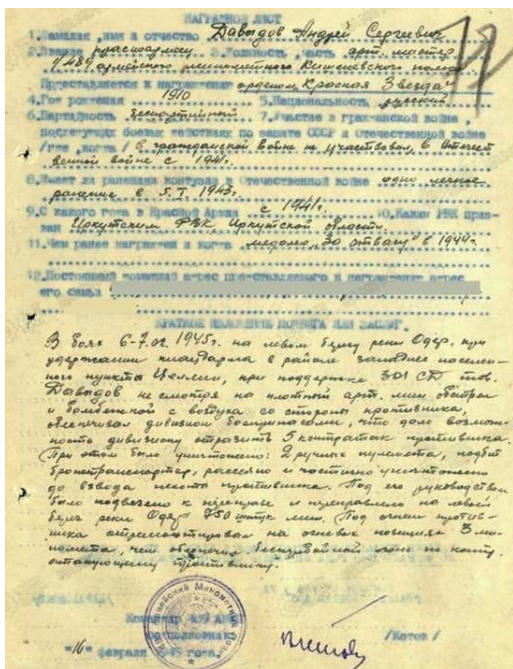 НАГРАДНОЙ ЛИСТ
1.Фамилия, имя и отчество Давыдов Андрей Сергеевич
2.Звание красноармеец 3.Должность, часть арт. мастер
489 армейского минометного Кишиневского полка
Представляется к награждению орденом "Красная Звезда"
4.Год рождения 1910 5.Национальность русский
6.Партийность беспартийный 7.Участие в гражданской войне,
последующих боевых действиях по защите СССР и Отечественной войне
/где, когда/ в гражданской войне не участвовал, в Отечест
венной войне с 1941г.
8.Имеет ли ранения контузии в Отечественной войне одно легкое
ранение в 1943г.
9.С какого года в Красной Армии с 1941г. 10.Каким РВК приз-
ван Иркутским РВК Иркутской области
11.Чем ранее награжден и когда медаль "За отвагу" в 1944г.
12.Постоянный домашний адрес представляемого к награждению адрес
его семьи
КРАТКОЕ ИЗЛОЖЕНИЕ ПОДВИГА ИЛИ ЗАСЛУГ.
В боях 6-7.02.1945г. на левом берегу реки Одер, при
удержании плацдарма в районе западнее населен-
ного пункта Целлин, при поддержке 301 СД тов.
Давыдов не смотря на плотный арт. мин обстрел
и бомбежкой с воздуха со стороны противника,
обеспечивал дивизион боеприпасами, что дало возмож-
ность дивизиону отразить 5 контратак противника.
При этом было уничтожено: 2 ручных пулемета, подбит
бронетранспортер, рассеяно и частично уничтожено
до взвода пехоты противника. Под его руководством
было подвезено к переправе и переправлено на левый
берег реки Одер 750 штук мин. Под огнем против-
ника отремонтировал на огневых позициях 3 ми-
номета, чем обеспечил бесперебойный огонь по контр.
атакующему противнику.
Командир 489 АМП
подполковник /Котов /
"16" февраля 1945 года.